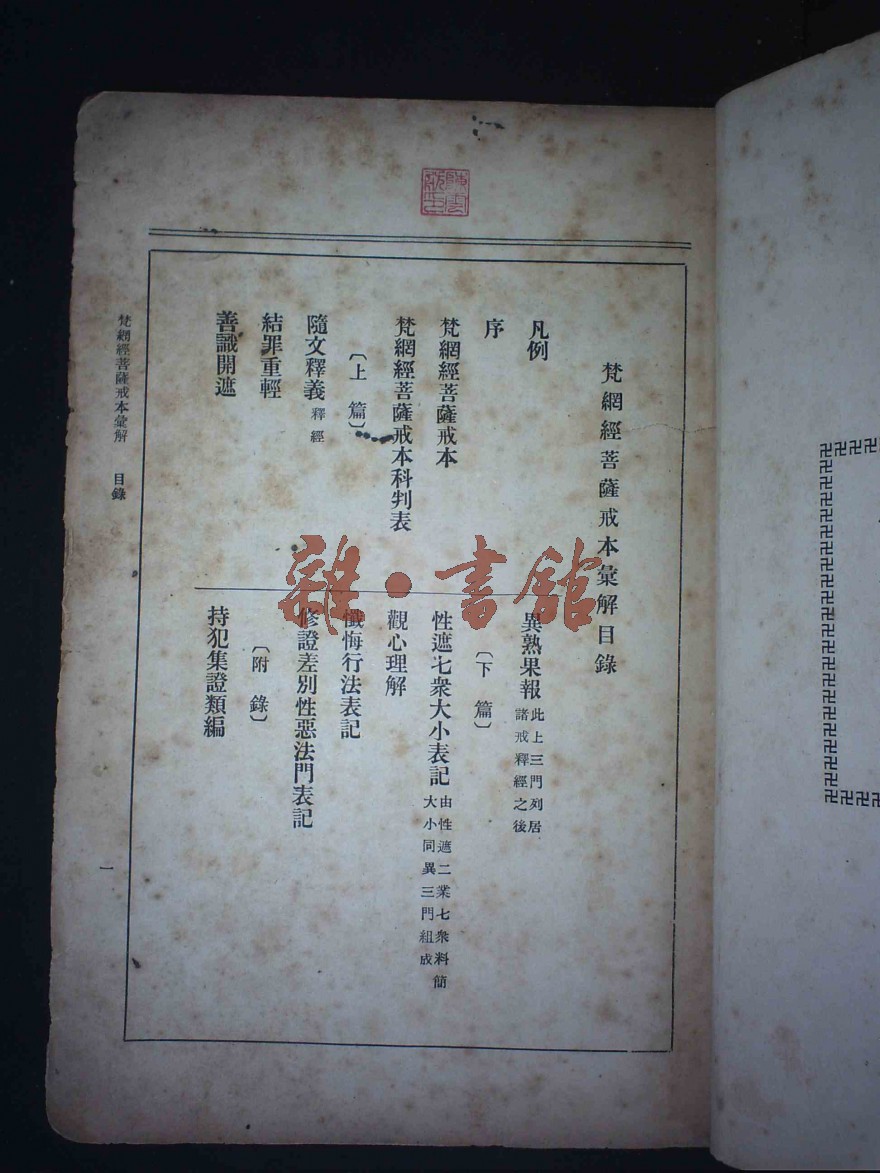 梵網經菩薩戒本彙解目錄
凡例
序
梵網經菩薩戒本
梵網經菩薩戒本科判表
〔上篇〕
隨文釋義 釋經
結罪重輕
善識開遮
異熟果報 此上三門列居
諸戒釋經之後
〔下篇〕
性遮七衆大小表記 由性遮二業七衆料簡
大小同異三門組成
觀心理解
懺悔行法表記
修證差別性惡法門表記
〔附錄〕
持犯集證類編
梵網經菩薩戒本彙解 目錄
一
雜·書館